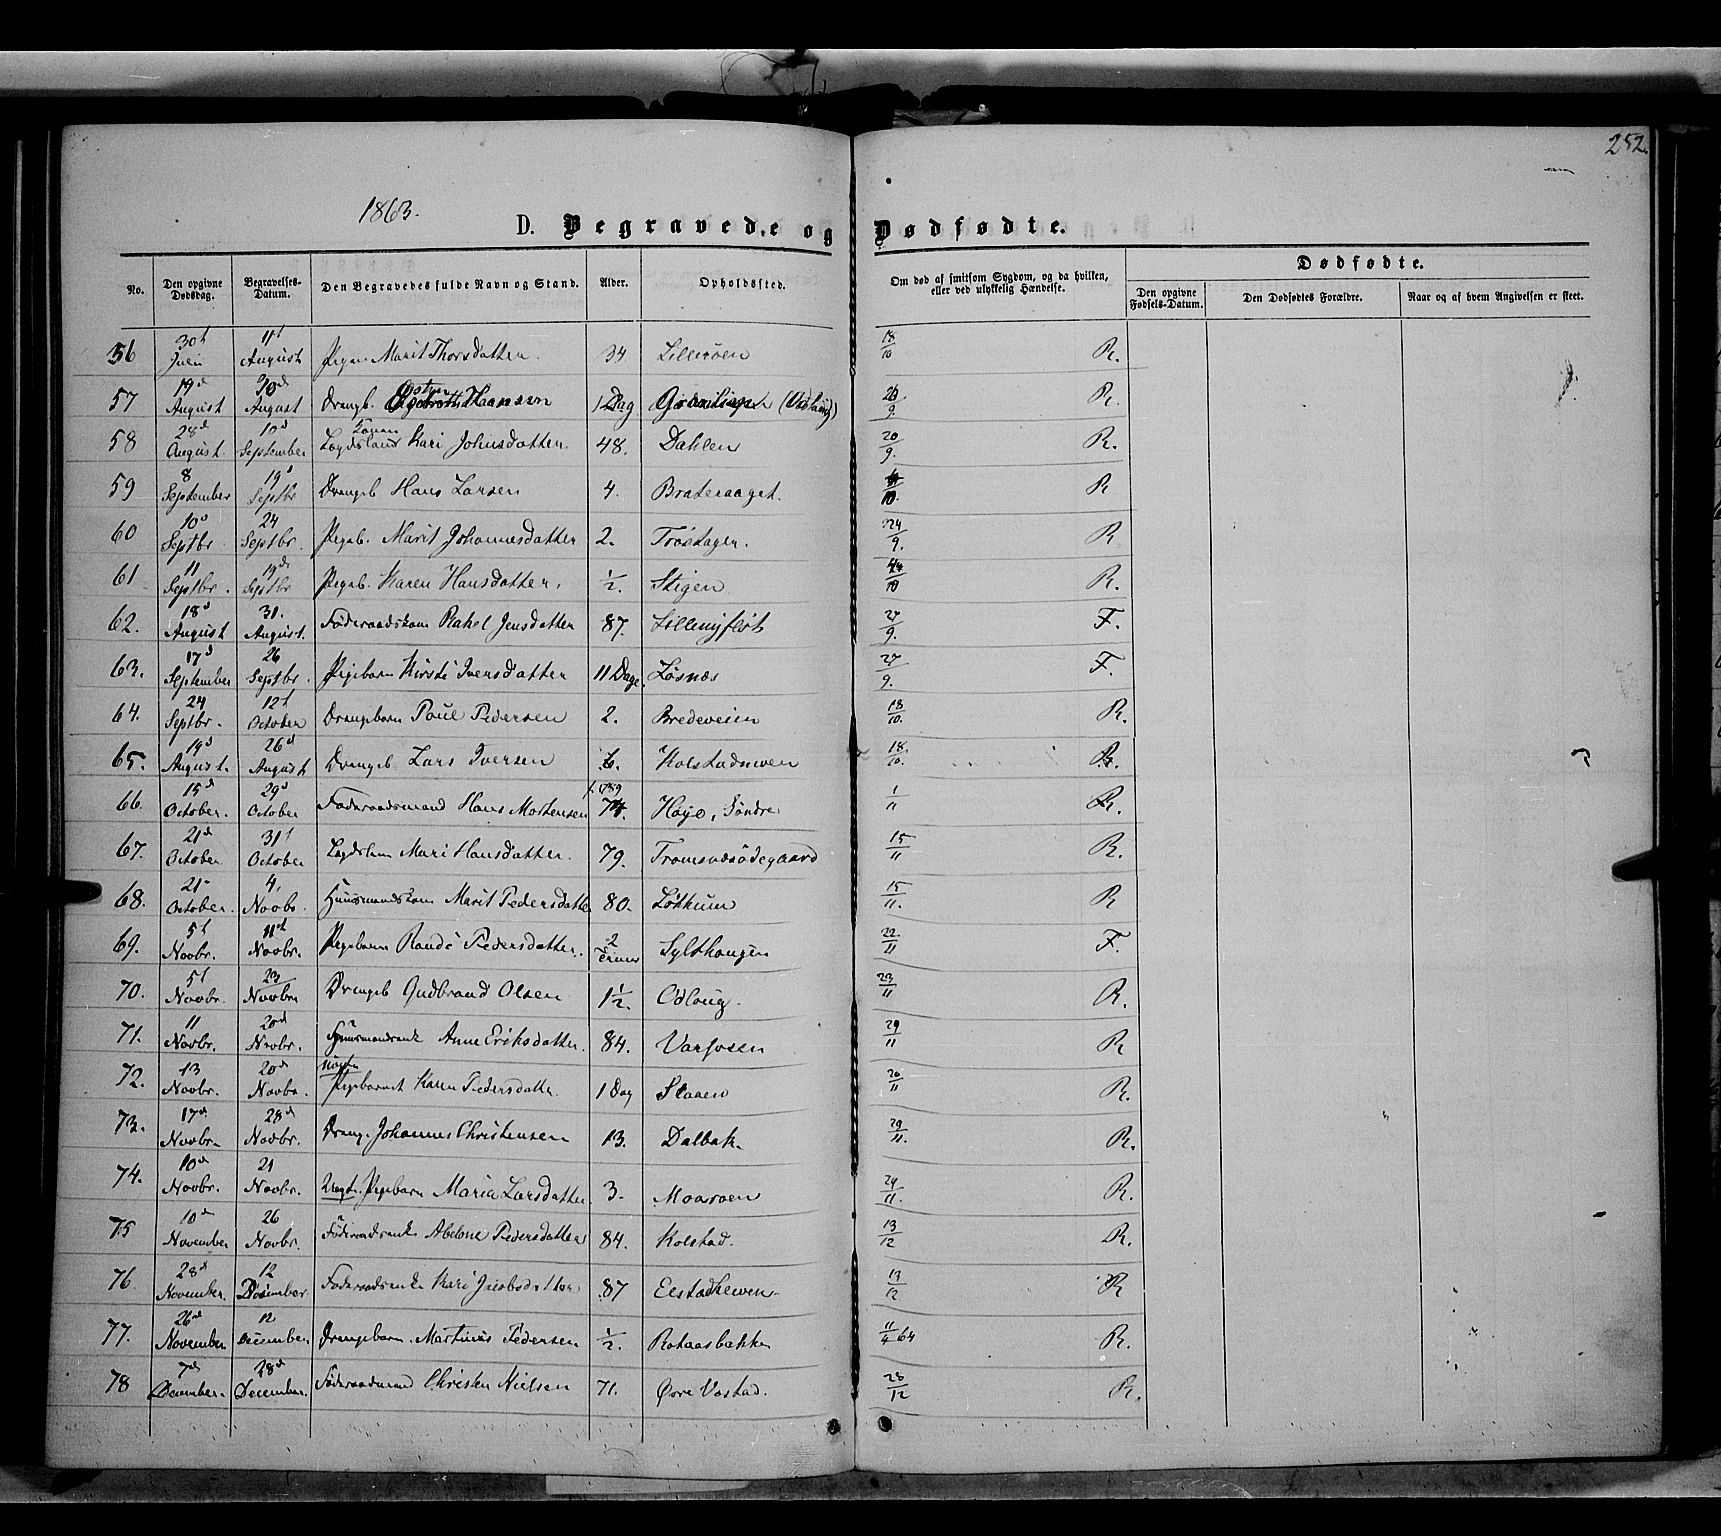 252.
1863.
D. Begravede og Dødfødte.
No. | Den opgivne Dødsdag. | Begravelses-Datum. | Den Begravedes fulde Navn og Stand. | Alder. | Opholdssted. | Om død af smitsom Sygdom, og da hvilken, eller ved ulykkelig Hændelse. | Dødfødte.
Den opgivne Fødsels-Datum. | Den Dødfødtes Forældre. | Naar og af hvem Angivelsen er skeet.
56 | 30t Juli | 11t August | Pigen Marit Thorsdatter. | 34 | Lillemoen | 18/10 | R.
57 | 19d August | 30d August | Drengb. Hansen | 1 Dag | (Vaslaug) | 9. | R.
58 | 28d August. | 10d September | Lægdslem Konen Kari Johnsdatter. | 48. | Dahlen | 20/9. | R.
59 | 8 September | 19d Septbr | Drengeb Hans Larsen | 4. | Brateraaget. | 10. | R
60 | 10d Septbr. | 24 Septbr. | Pigeb. Marit Johannesdatter | 2. | Trøstagen. | 24/9. | R
61 | 11 Septbr. | 19de Septbr | Pigeb. Karen Hansdatter. | 1/2. | Stigen | 10 | R.
62. | 18d August | 31. August. | Føderaadskone Rahel Jensdatter | 87. | Lillemyfløt | 27/9. | F.
63. | 17d September | 26 Septbr. | Pigebarn Kirsti Iversdatter | 11 Dage. | Løsnæs | 27/9. | F.
64. | 24 Septbr. | 12t October | Drengebarn Poul Pedersen | 2. | Bredeveien | 18/10. | R.
65. | 14d August. | 26d August | Drengeb Lars Iversen | 6. | Kolstadmoen | 18/10. | R.
66. | 15d October. | 29d October | Føderaadsmand Hans Mortensen | f. 1789 74. | Høye, Søndre | 1/11 | R.
67. | 21d October. | 31t October | Lægdslem Mari Hansdatter. | 79. | Tromsnæsødegaard | 15/11 | R.
68. | 21 October. | 4. Novbr. | Huusmandskone Marit Pedersdatter | 80. | Løkkum | 15/11. | R
69. | 5t Novbr. | 11t Novbr. | Pigebarn Randi Pedersdatter. | 2 Timer | Sylthaugen | 22/11 | F.
70. | 5t Novbr. | 23 Novbr | Drengeb Gudbrand Olsen | 1 1/2. | Odloug. | 23/11 | R.
71. | 11 Novbr. | 20d Novbr. | Huusmandsenke Anne Eriksdatter. | 84. | Varjosen | 29/11 | R
72. | 13 Novbr. | 20d Novbr. | Uægte Pigebarnet Karen Pedersdatter. | 1 Dag | Slaaen | 20/11 | R.
73. | 17de Novbr. | 28d Novbr. | Dreng. Johannes Christensen | 13. | Dalbak. | 29/11. | R.
74. | 10d Novbr. | 21 Novbr. | Uægte. Pigebarn Maria Larsdatter. | 3. | Moaroen | 29/11. | R.
75 | 10d November | 26 Novbr. | Føderaadsenke Abelone Pedersdatter | 84. | Kolstad. | 13/12 | R.
76 | 28d November. | 12 December | Føderaadsenke Kari Jacobsdatter | 87 | Elstadkewen | 13/12 | R
77. | 26d November | 12 December. | Drengebarn. Martinus Pedersen. | 1/2. | Rotaasbakken | 11/4 64 | R.
78 | 7de December. | 28d December. | Føderaadsmand Christen Nielsen | 71. | Øvre Vostad. | 28/12 | R.